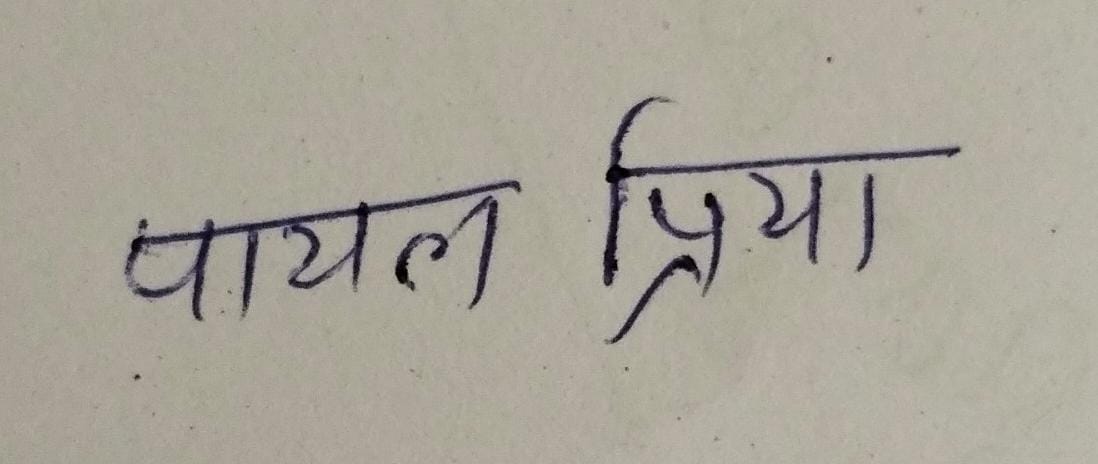 पायल प्रिया